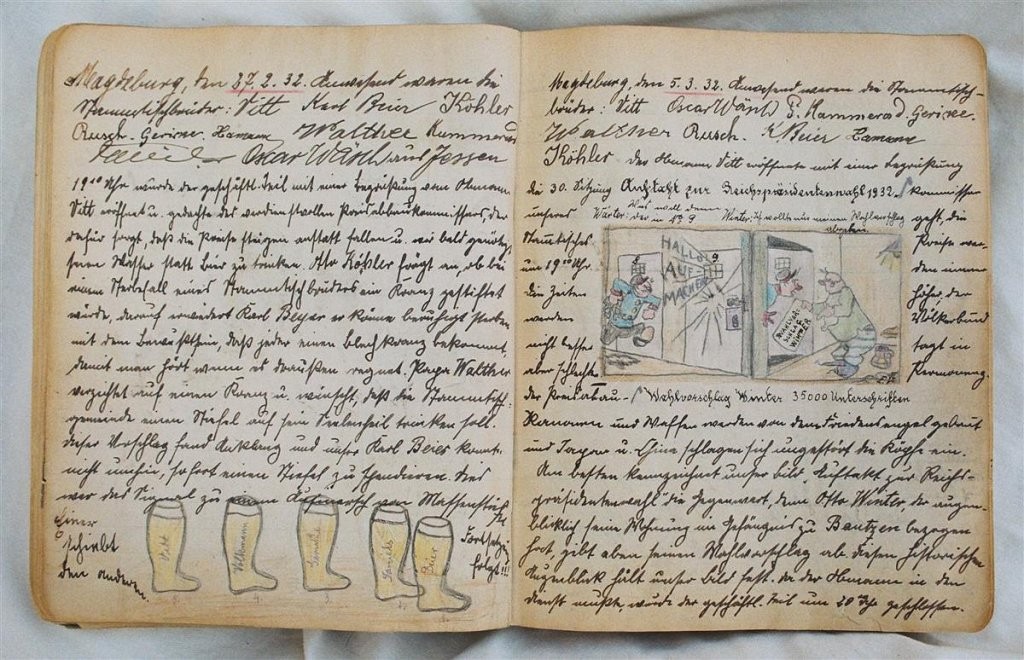 Magdeburg, den 27.2.32. Anwesend waren die
Stammtischbrüder: Vitt Karl Beier Köhler
Rusch. Gericke. Hamann Walther Kummerad
Oscar Wüsth aus Jessen
19 10 Uhr wurde der geschäftl. Teil mit einer Begrüßung vom Obmann
Vitt eröffnet u. gedachte des verdienstvollen Preisabbaukommissars, der
dafür sorgt, daß die Preise steigen anstatt fallen u. wir bald genötigt
sein Wasser statt Bier zu trinken. Otto Köhler frägt an, ob bei
einem Sterbefall eines Stammtischbruders ein Kranz gestiftet
würde, darauf erwiedert Karl Beyer er könne beruhigt sterben
mit dem Bewußtsein, daß jeder einen Blechkranz bekommt,
damit man hört wenn es draußen regnet. Papa Walther
verzichtet auf einen Kranz u. wünscht, daß die Stammtisch-
gemeinde einen Stiefel auf sein Seelenheil trinken soll.
Dieser Vorschlag fand Anklang und unser Karl Beier konnte
nicht umhin, sofort einen Stiefel zu spendieren. Dies
war das Signal zu einem Aufmarsch von
Einer
schiebt
den anderen.
Vitt
Beier
5
4
3
2
1
Fortsetzung
folgt!!
Magdeburg, den 5.3.32. Anwesend waren die Stammtisch-
brüder: Vitt Oscar Wüsth Kummerad. Gericke.
Walther Rusch. K. Beier Hamann
Köhler. Der Obmann Vitt eröffnete mit einer Begrüßung
die 30. Sitzung Auftakt zur Reichspräsidentenwahl 1932. kommissar
unseres
Stammtisches
um 19 10 Uhr.
Die Zeiten
werden
nicht besser
aber schlechter
der
Wärter: Was will denn
der in No 9
Winter: Ich wollte nur meinen Wahlvorschlag
abgeben
HALLO
AUF
MACHEN
9
WAHLVOR
SCHLAG
WINTER
geht, die
Preise wer-
den immer
höher, der
Völkerbund
tagt in
Permanenz
Wahlvorschlag Winter 35000 Unterschriften
Kanonen u. Waffen werden von dem Friedensengel gebaut
und Japan u. China schlagen sich ungestört die Köpfe ein.
Am besten kennzeichnet unser Bild, Auftakt zur Reichs-
präsidentenwahl die Gegenwart, denn Otto Winter, der augen-
blicklich seine Wohnung im Gefängnis zu Bautzen bezogen
hat, gibt eben seinen Wahlvorschlag ab. Diesen historischen
Augenblick hält unser Bild fest. Da der Obmann in den
Dienst mußte, wurde der geschäftl. Teil um 20 Uhr geschlossen.